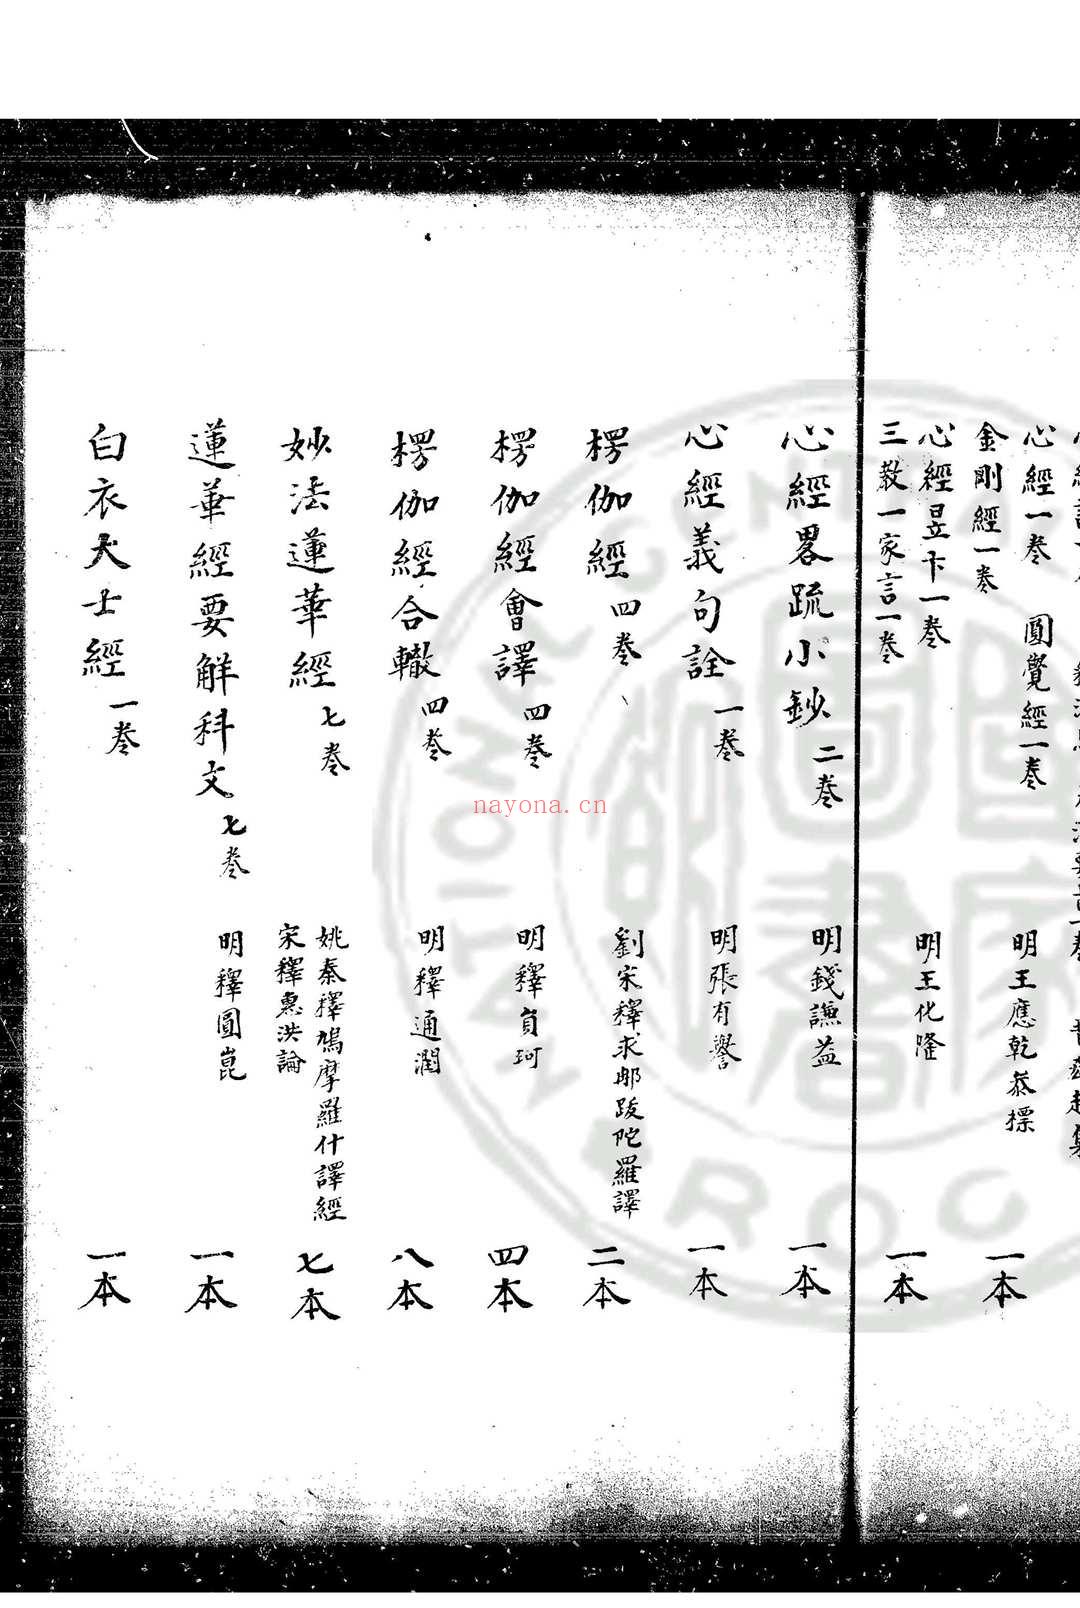 心經一卷 圓覺經一卷
金剛經一卷 明王應乾叅摽 一本
心經昱卞一卷
三教一家言一卷 明王化隆 一本
心經畧疏小鈔 二卷 明錢謙益 一本
心經義句詮 一卷 明張有譽 一本
楞伽經 四卷 劉宋釋求那跋陀羅譯 二本
楞伽經會譯 四卷 明釋員珂 四本
楞伽經合轍 四卷 明釋通潤 八本
妙法蓮華經 七卷 姚秦釋鳩摩羅什譯經 宋釋惠洪論 七本
蓮華經要解科文 七卷 明釋圓崑 一本
白衣大士經 一卷 一本
nayona.cn